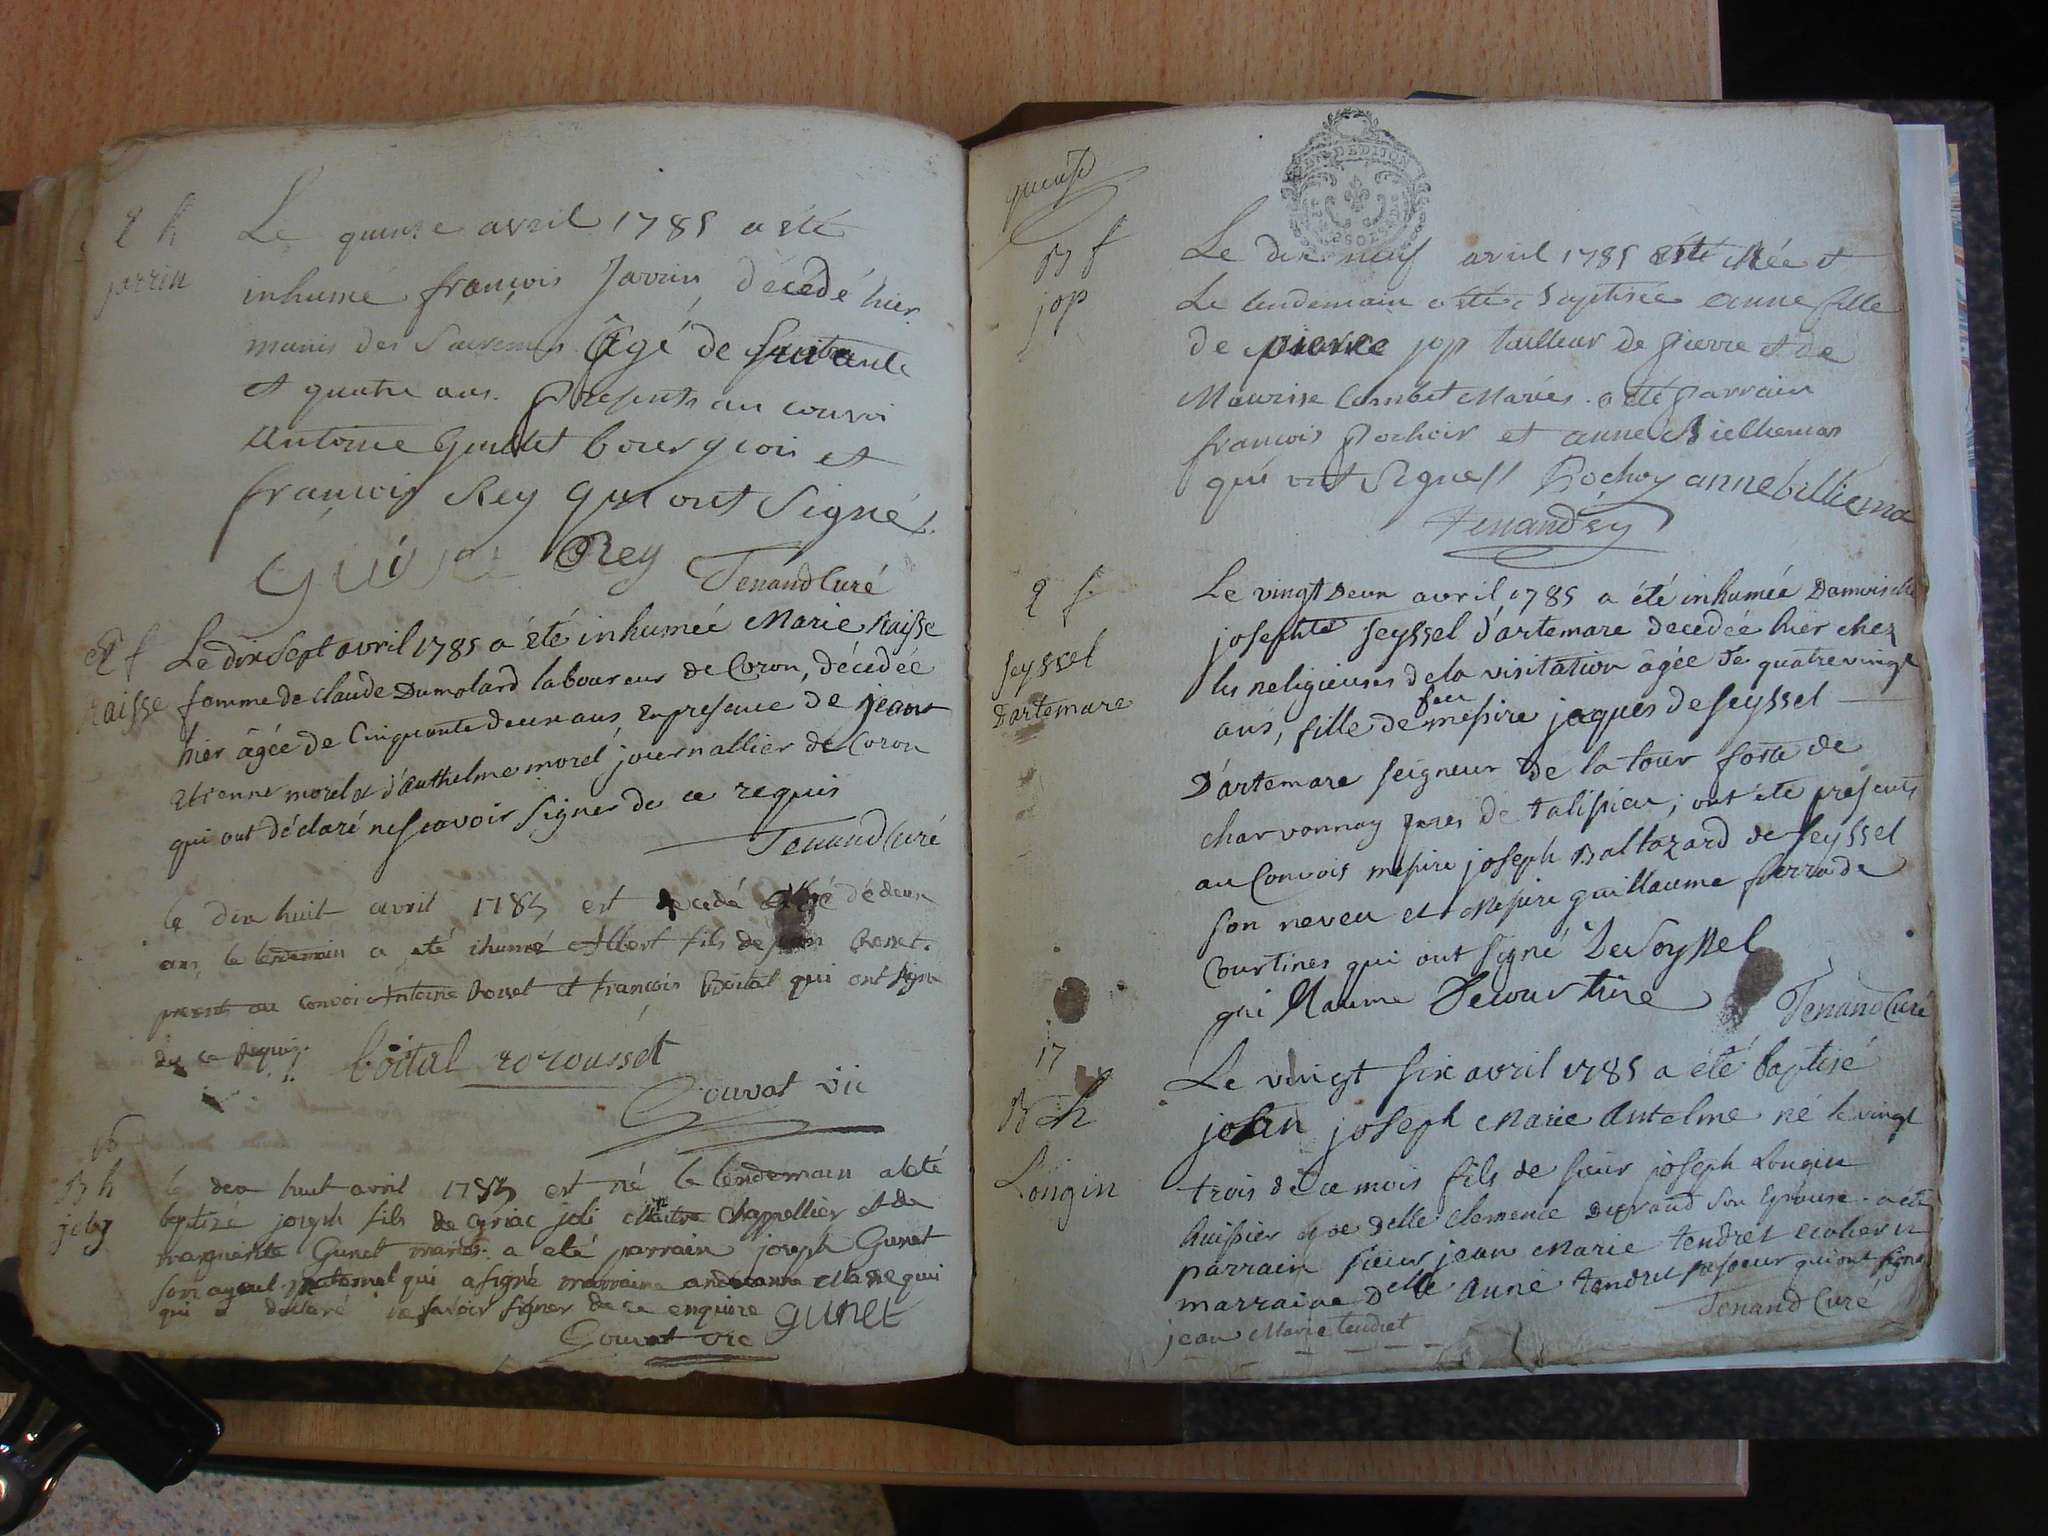 Le quinze avril 1785 a été
inhumé françois Jarrin, décédé hier
munis des Sacremens âgé de
et quatre ans. Presents au convoi
Antoine bourgeois et
françois Rey qui ont Signé
Rey
Tenand Curé
jarrin
Le dix Sept avril 1785 a été inhumée Marie Raisse
femme de claude Dumolard laboureur de Coron, décédée
hier âgée de Cinquante deux ans, en presence de jean
etienne morel et d'Anthelme morel journallier de Coron
qui ont déclaré ne scavoir signer de ce requis
Tenand Curé
Raisse
le dix huit avril 1785 est decedé agé de deux
ans, le lendemain a eté ihumé Albert fils de jean Rosset.
presents au convoi Antoine Rosset et françois Boital qui ont signé
de ce requis.
boital rousset
Gouvat vic
16
B h
joly
le dix huit avril 1785 est né le lendemain a eté
baptizé joseph fils de Cyriac joli Maitre Chappellier et de
marguerite Gunet mariés. a eté parrain joseph Gunet
son ayeul maternel qui a signé marraine
qui a declaré ne savoir signer de ce enquise
Gunet
Gouvat vic
B f
jop
Le dix neuf avril 1785 est née et
Le lendemain a été baptisée anne fille
de pierre jop tailleur de pierre et de
Maurise Combet Mariés. a été parrain
françois Pochoir et anne Billiemas
qui ont Signés Pochoy anne billiema
Tenand
seyssel
Dartemare
Le vingt Deux avril 1785 a été inhumée Damoiselle
josephte Seyssel d'artemare decedée hier chez
les religieuses de la visitation âgée de quatrevingt
ans, fille de feu messire jaques de seyssel
D'artemare seigneur de la tour forte de
charvonnay pres de talissieu; ont été presents
au Convois messire joseph Baltazard de Seyssel
son neveu et Messire guillaume ferra de
Courtines qui ont signé De Seyssel
guillaume Decourtine Tenand Curé
17
B h
Longin
Le vingt six avril 1785 a été baptisé
jean joseph Marie Antelme né le vingt
trois de ce mois fils de sieur joseph Longin
huissier et de delle clemence Durand son Epouse. a été
parrain sieur jean Marie tendret ecolier et
marraine Delle Anne tendret sa soeur qui ont signé
jean Marie tendret
Tenand Curé